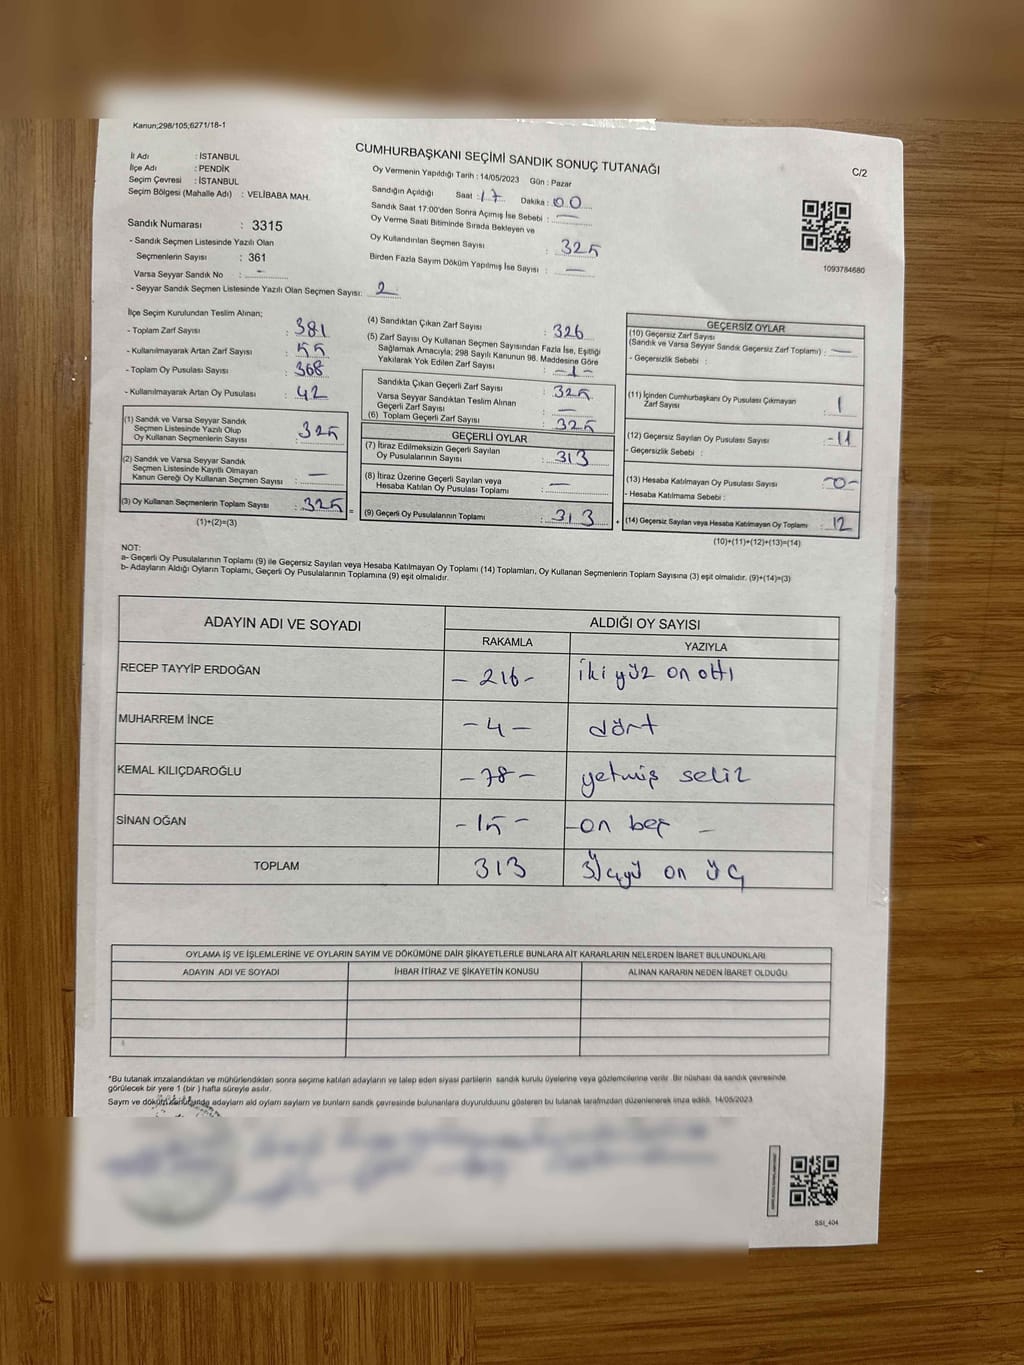 Kanun;298/105;6271/18-1
CUMHURBAŞKANI SEÇİMİ SANDIK SONUÇ TUTANAĞI
C/2
İl Adı : İSTANBUL
İlçe Adı : PENDİK
Seçim Çevresi : İSTANBUL
Seçim Bölgesi (Mahalle Adı) : VELİBABA MAH.
Sandık Numarası : 3315
- Sandık Seçmen Listesinde Yazılı Olan
Seçmenlerin Sayısı : 361
Varsa Seyyar Sandık No : -
- Seyyar Sandık Seçmen Listesinde Yazılı Olan Seçmen Sayısı: 2
Oy Vermenin Yapıldığı Tarih : 14/05/2023 Gün : Pazar
Sandığın Açıldığı Saat : 17 Dakika : 00
Sandık Saat 17:00'den Sonra Açımış İse Sebebi : —
Oy Verme Saati Bitiminde Sırada Bekleyen ve
Oy Kullandırılan Seçmen Sayısı : 325
Birden Fazla Sayım Döküm Yapılmış İse Sayısı : —
1093784680
İlçe Seçim Kurulundan Teslim Alınan;
- Toplam Zarf Sayısı : 381
- Kullanılmayarak Artan Zarf Sayısı : 55
- Toplam Oy Pusulası Sayısı : 368
- Kullanılmayarak Artan Oy Pusulası : 42
(1) Sandık ve Varsa Seyyar Sandık
Seçmen Listesinde Yazılı Olup
Oy Kullanan Seçmenlerin Sayısı : 325
(2) Sandık ve Varsa Seyyar Sandık
Seçmen Listesinde Kayıtlı Olmayan
Kanun Gereği Oy Kullanan Seçmen Sayısı : —
(3) Oy Kullanan Seçmenlerin Toplam Sayısı : 325 =
(1)+(2)=(3)
(4) Sandıktan Çıkan Zarf Sayısı : 326
(5) Zarf Sayısı Oy Kullanan Seçmen Sayısından Fazla İse, Eşitliği
Sağlamak Amacıyla; 298 Sayılı Kanunun 98. Maddesine Göre
Yakılarak Yok Edilen Zarf Sayısı : -1-
Sandıkta Çıkan Geçerli Zarf Sayısı : 325
Varsa Seyyar Sandıktan Teslim Alınan
Geçerli Zarf Sayısı : —
(6) Toplam Geçerli Zarf Sayısı : 325
GEÇERLİ OYLAR
(7) İtiraz Edilmeksizin Geçerli Sayılan
Oy Pusulalarının Sayısı : 313
(8) İtiraz Üzerine Geçerli Sayılan veya
Hesaba Katılan Oy Pusulası Toplamı : —
(9) Geçerli Oy Pusulalarının Toplamı : 313 +
GEÇERSİZ OYLAR
(10) Geçersiz Zarf Sayısı
(Sandık ve Varsa Seyyar Sandık Geçersiz Zarf Toplamı) : —
- Geçersizlik Sebebi :
(11) İçinden Cumhurbaşkanı Oy Pusulası Çıkmayan
Zarf Sayısı : 1
(12) Geçersiz Sayılan Oy Pusulası Sayısı : -11
- Geçersizlik Sebebi :
(13) Hesaba Katılmayan Oy Pusulası Sayısı -0-
- Hesaba Katılmama Sebebi :
(14) Geçersiz Sayılan veya Hesaba Katılmayan Oy Toplamı : 12
(10)+(11)+(12)+(13)=(14)
NOT:
a- Geçerli Oy Pusulalarının Toplamı (9) ile Geçersiz Sayılan veya Hesaba Katılmayan Oy Toplamı (14) Toplamları, Oy Kullanan Seçmenlerin Toplam Sayısına (3) eşit olmalıdır. (9)+(14)=(3)
b- Adayların Aldığı Oyların Toplamı, Geçerli Oy Pusulalarının Toplamına (9) eşit olmalıdır.
ADAYIN ADI VE SOYADI ALDIĞI OY SAYISI
RAKAMLA YAZIYLA
RECEP TAYYİP ERDOĞAN - 216 - iki yüz on altı
MUHARREM İNCE - 4 - dört
KEMAL KILIÇDAROĞLU - 78 - yetmiş sekiz
SİNAN OĞAN - 15 - -on beş -
TOPLAM 313 Üçyü on üç
OYLAMA İŞ VE İŞLEMLERİNE VE OYLARIN SAYIM VE DÖKÜMÜNE DAİR ŞİKAYETLERLE BUNLARA AİT KARARLARIN NELERDEN İBARET BULUNDUKLARI
ADAYIN ADI VE SOYADI İHBAR İTİRAZ VE ŞİKAYETİN KONUSU ALINAN KARARIN NEDEN İBARET OLDUĞU
*Bu tutanak imzalandıktan ve mühürlendikten sonra seçime katılan adayların ve talep eden siyasi partilerin sandık kurulu üyelerine veya gözlemcilerine verilir. Bir nüshası da sandık çevresinde
görülecek bir yere 1 (bir ) hafta süreyle asılır.
Sayım ve döküm sonucunda adayların aldığı oyların sayıların ve bunların sandık çevresinde bulunanlara duyurulduunu gösteren bu tutanak tarafımızdan düzenlenerek imza edildi. 14/05/2023
SSI_404